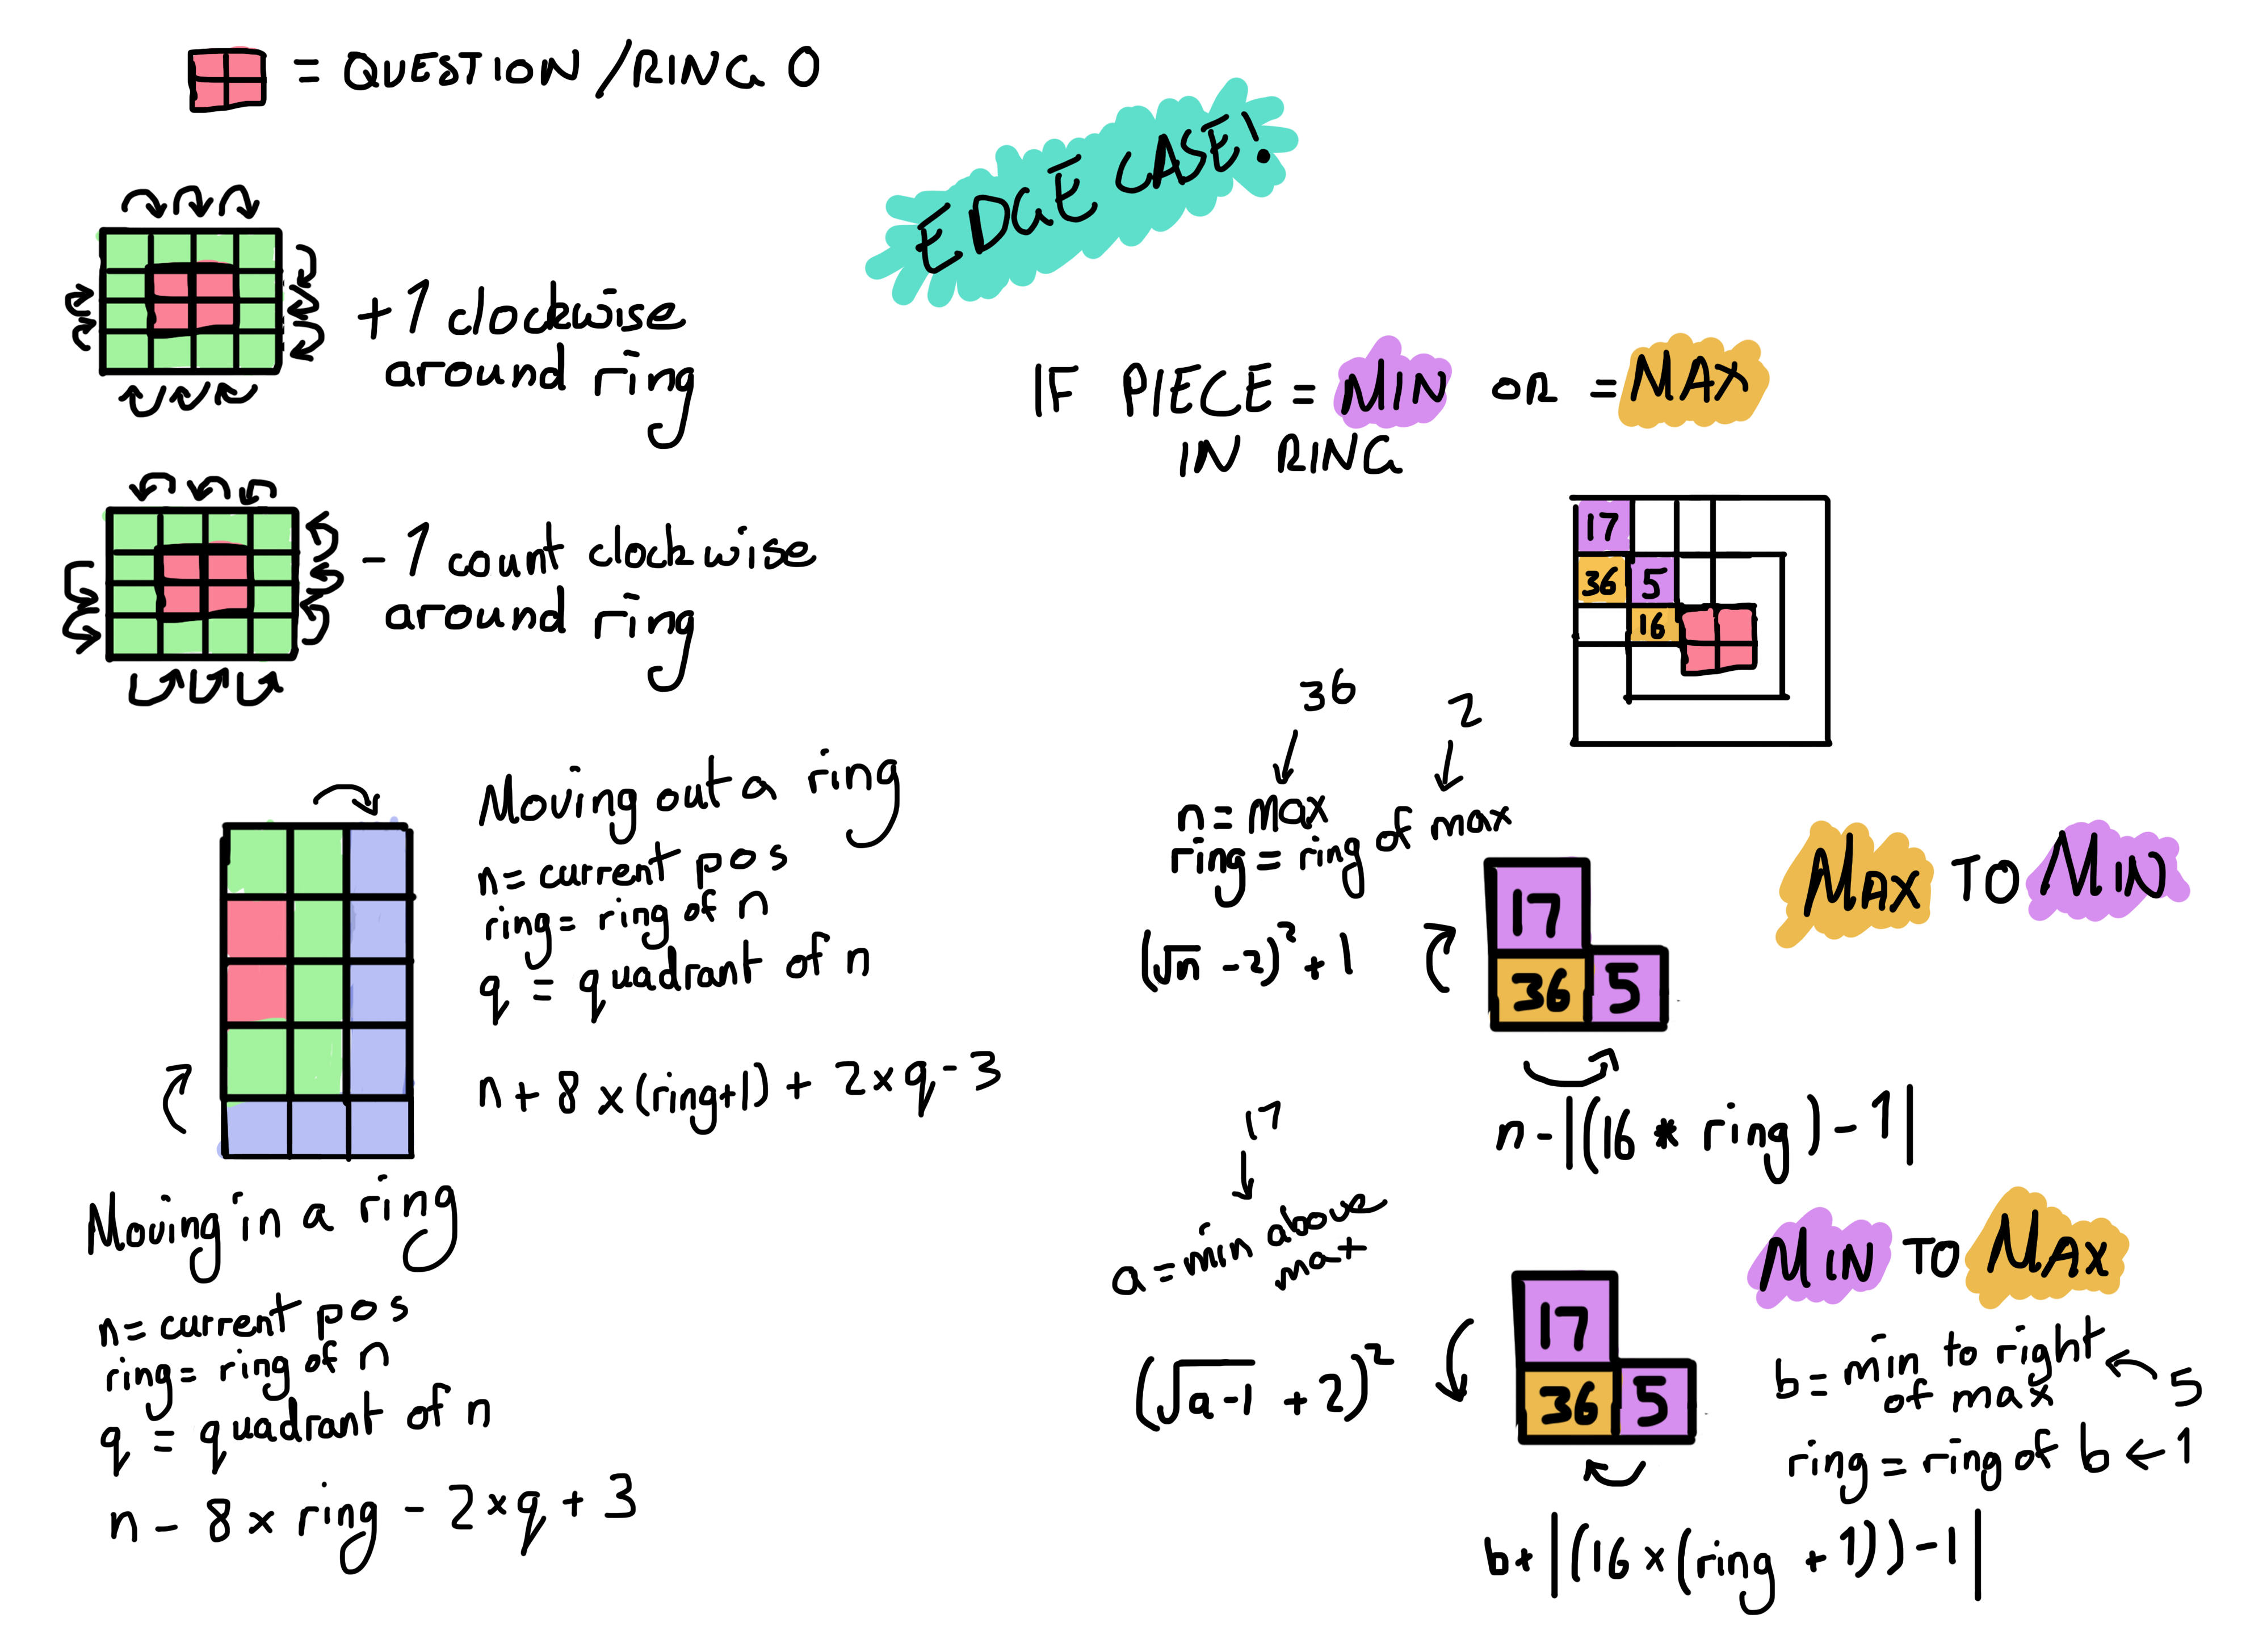 = QUESTION / RING 0
+1 clockwise
around ring
-1 count clockwise
around ring
Moving out a ring
n= current pos
ring= ring of n
q = quadrant of n
n + 8 x (ring+1) + 2xq-3
Moving in a ring
n= current pos
ring= ring of n
q = quadrant of n
n - 8 x ring - 2xq + 3
EDGE CASE!
IF PIECE = MIN OR = MAX
IN RING
17
36 5
16
36
2
n = max
ring = ring of max
(√n - 2)² + 1
17
36 5
MAX TO MIN
n-|(16 * ring) - 1|
17
a = min above
max
(√a-1 + 2)²
17
36 5
MIN TO MAX
b= min to right
of max
5
ring = ring of b ← 1
b+ |(16 x (ring + 1)) - 1|